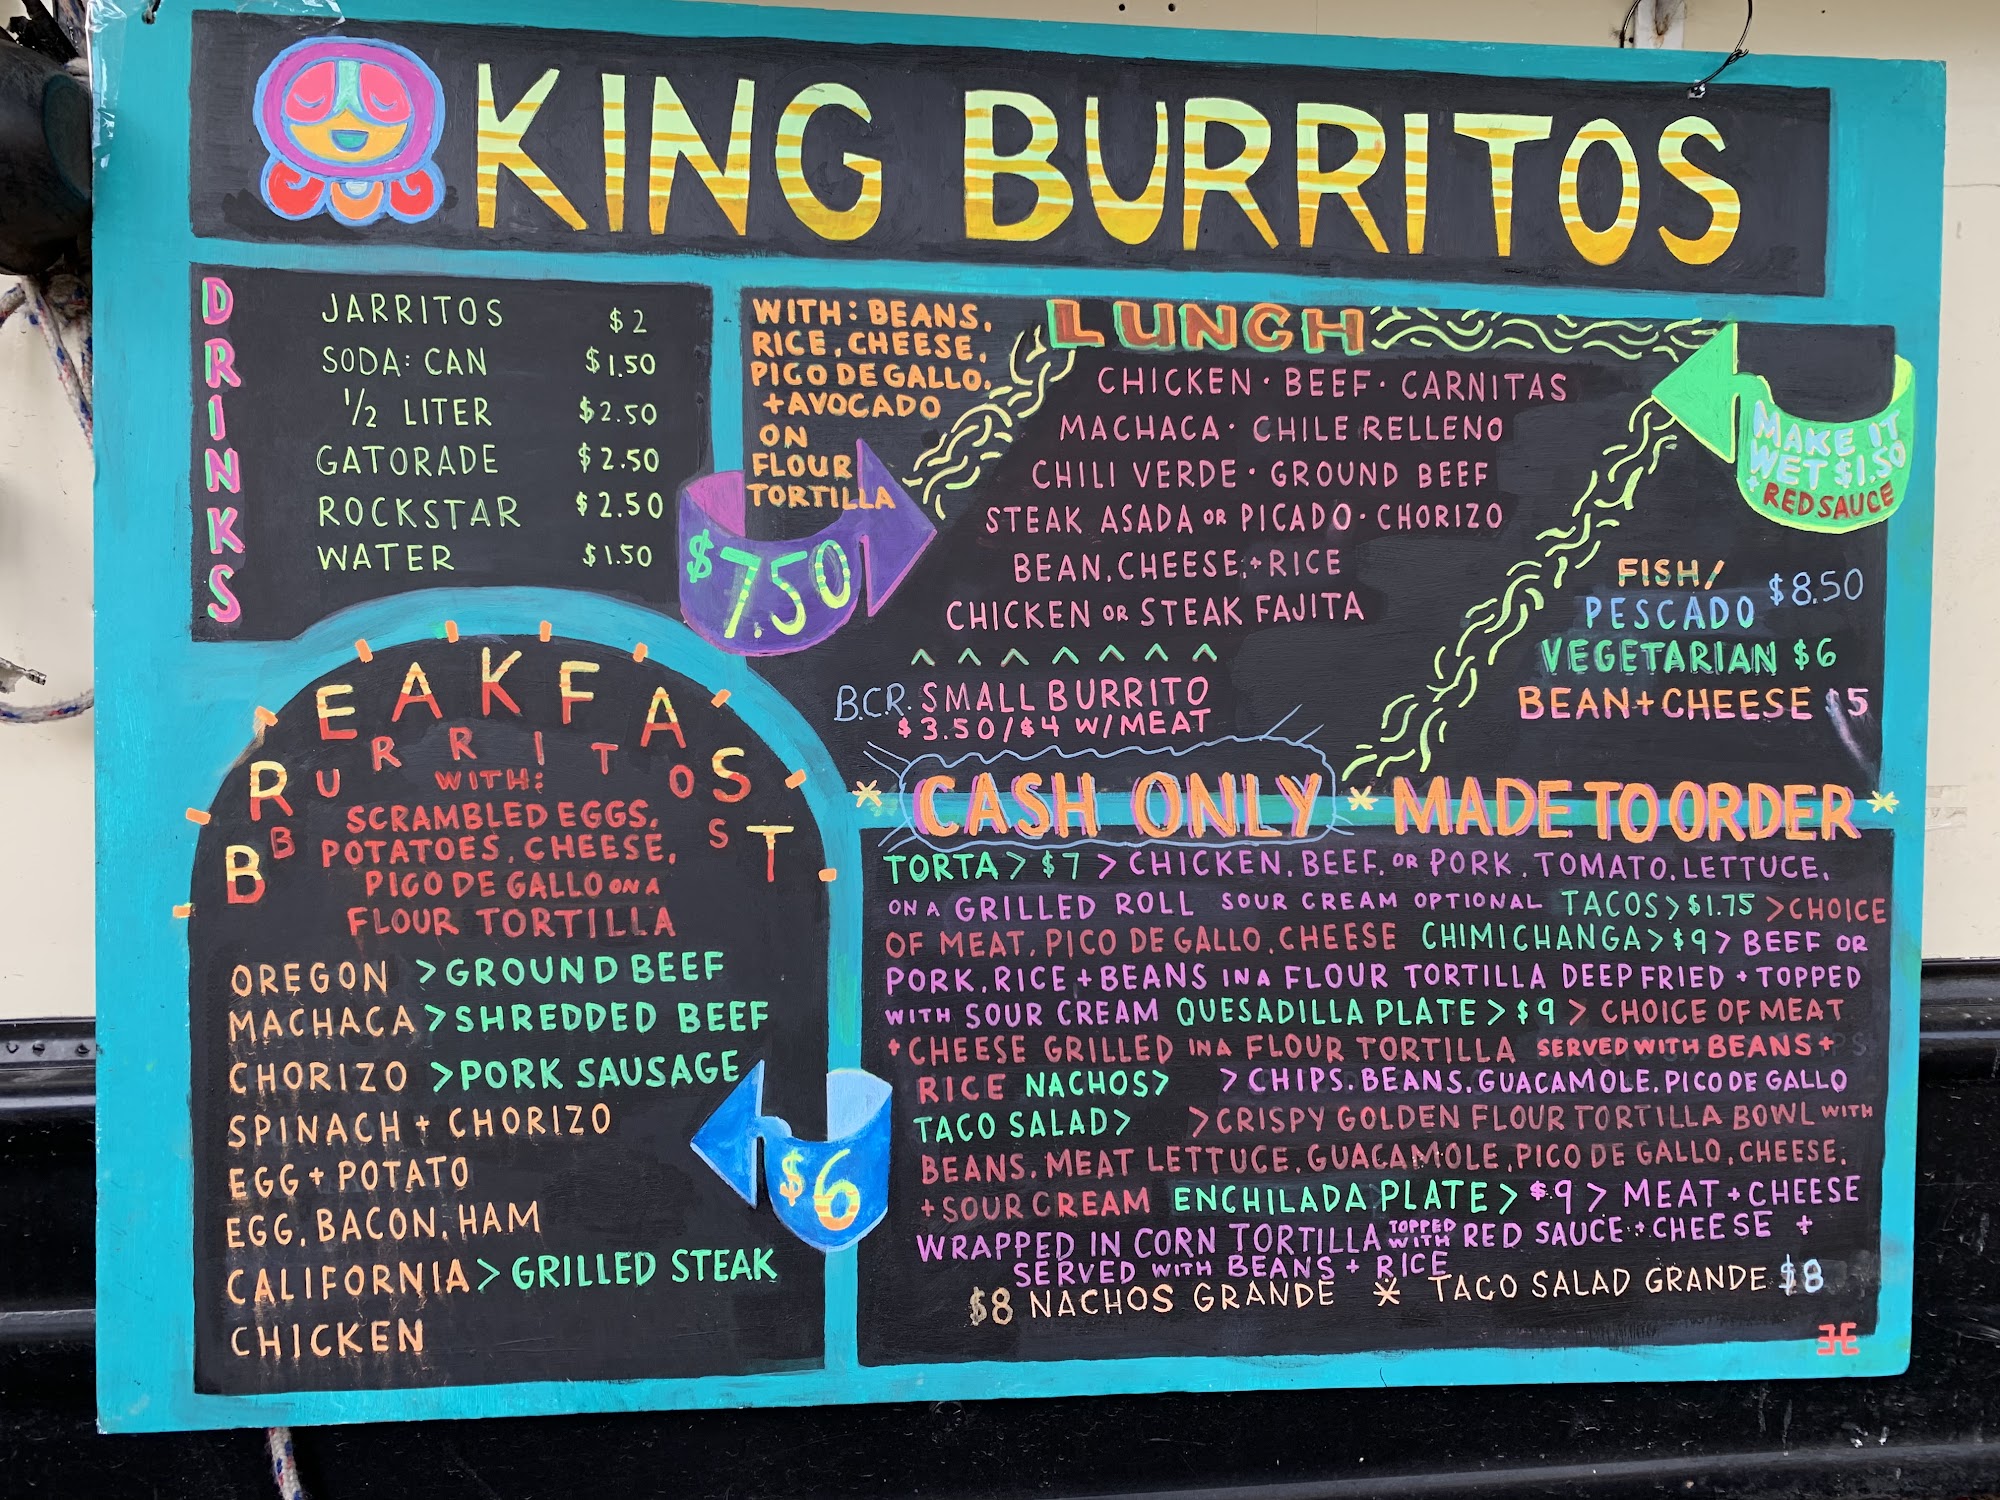 KING BURRITOS
DRINKS
JARRITOS $2
SODA: CAN $1.50
1/2 LITER $2.50
GATORADE $2.50
ROCKSTAR $2.50
WATER $1.50
WITH: BEANS,
RICE, CHEESE,
PICO DE GALLO,
+AVOCADO
ON
FLOUR
TORTILLA
$7.50
LUNCH
CHICKEN · BEEF · CARNITAS
MACHACA · CHILE RELLENO
CHILI VERDE · GROUND BEEF
STEAK ASADA OR PICADO · CHORIZO
BEAN, CHEESE, + RICE
CHICKEN OR STEAK FAJITA
B.C.R. SMALL BURRITO
$3.50/$4 W/MEAT
MAKE IT
WET $1.50
+ RED SAUCE
FISH/
PESCADO $8.50
VEGETARIAN $6
BEAN+CHEESE $5
BREAKFAST
BURRITOS
WITH:
SCRAMBLED EGGS,
POTATOES, CHEESE,
PICO DE GALLO ON A
FLOUR TORTILLA
OREGON >GROUND BEEF
MACHACA >SHREDDED BEEF
CHORIZO >PORK SAUSAGE
SPINACH + CHORIZO
EGG + POTATO
EGG, BACON, HAM
CALIFORNIA > GRILLED STEAK
CHICKEN
$6
* CASH ONLY * MADE TO ORDER *
TORTA > $7 > CHICKEN, BEEF, OR PORK, TOMATO, LETTUCE,
ON A GRILLED ROLL SOUR CREAM OPTIONAL TACOS > $1.75 >CHOICE
OF MEAT, PICO DE GALLO, CHEESE CHIMICHANGA > $9 > BEEF OR
PORK, RICE + BEANS IN A FLOUR TORTILLA DEEP FRIED + TOPPED
WITH SOUR CREAM QUESADILLA PLATE > $9 > CHOICE OF MEAT
+ CHEESE GRILLED IN A FLOUR TORTILLA SERVED WITH BEANS +
RICE NACHOS> > CHIPS, BEANS, GUACAMOLE, PICO DE GALLO
TACO SALAD> >CRISPY GOLDEN FLOUR TORTILLA BOWL WITH
BEANS, MEAT LETTUCE, GUACAMOLE, PICO DE GALLO, CHEESE,
+ SOUR CREAM ENCHILADA PLATE > $9 > MEAT + CHEESE
WRAPPED IN CORN TORTILLA TOPPED WITH RED SAUCE + CHEESE +
SERVED WITH BEANS + RICE
$8 NACHOS GRANDE * TACO SALAD GRANDE $8